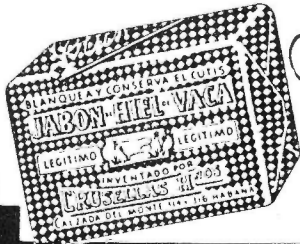 BLANQUEA Y CONSERVA EL CUTIS
JABON DE HIEL DE VACA
LEGITIMO LEGITIMO
INVENTADO POR
CRUSELLAS Hnos
CALZADA DEL MONTE 314 316 HABANA